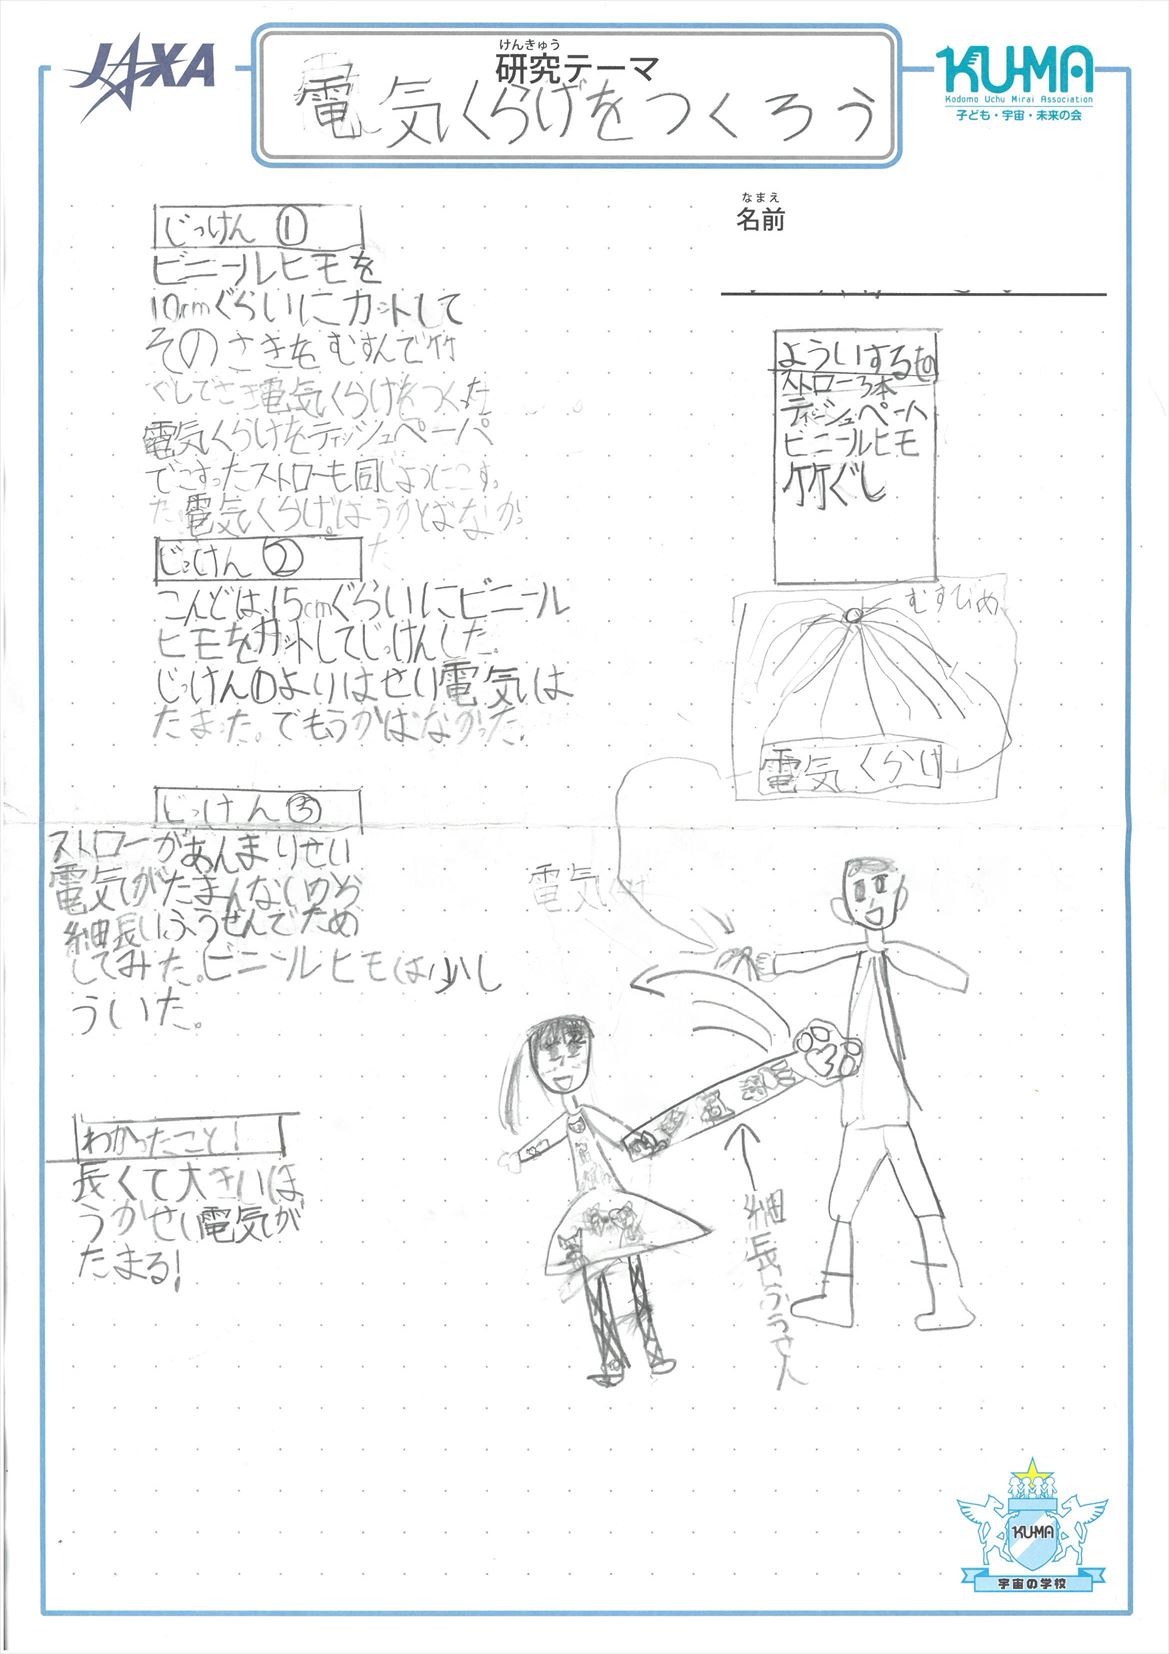 JAXA
けんきゅう
研究テーマ
電気くらげをつくろう
KU-MA
Kodomo Uchu Mirai Association
子ども・宇宙・未来の会
なまえ
名前
じっけん ①
ビニールヒモを
10cmぐらいにカットして
そのさきをむすんで竹
ぐしでさき電気くらげをつくった
電気くらげをティッシュペーパ
でこすったストローも同じようにこすっ
た。電気くらげはうかばなかっ
た
じっけん ②
こんどは、15cmぐらいにビニール
ヒモをカットしてじっけんした。
じっけん①よりはせい電気は
たまった。でもうかばなかった。
じっけん ③
ストローがあんまりせい
電気がたまんないので
細長いふうせんでため
してみた。ビニールヒモは少し
ういた。
わかったこと!
長くて大きいほ
うがせい電気が
たまる!
よういするもの
ストロー3本
ティッシュペーパー
ビニールヒモ
竹ぐし
むすびめ
電気くらげ
電気
細長いふうせん
KU-MA
宇宙の学校